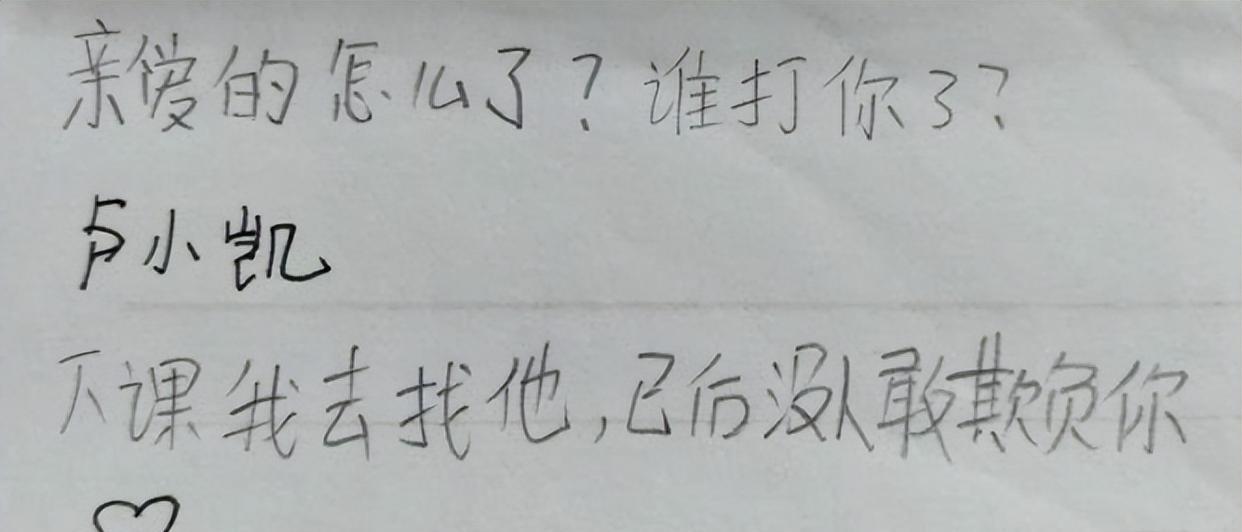 亲爱的怎么了？谁打你了？
卢小凯
下课我去找他,已后没人敢欺负你